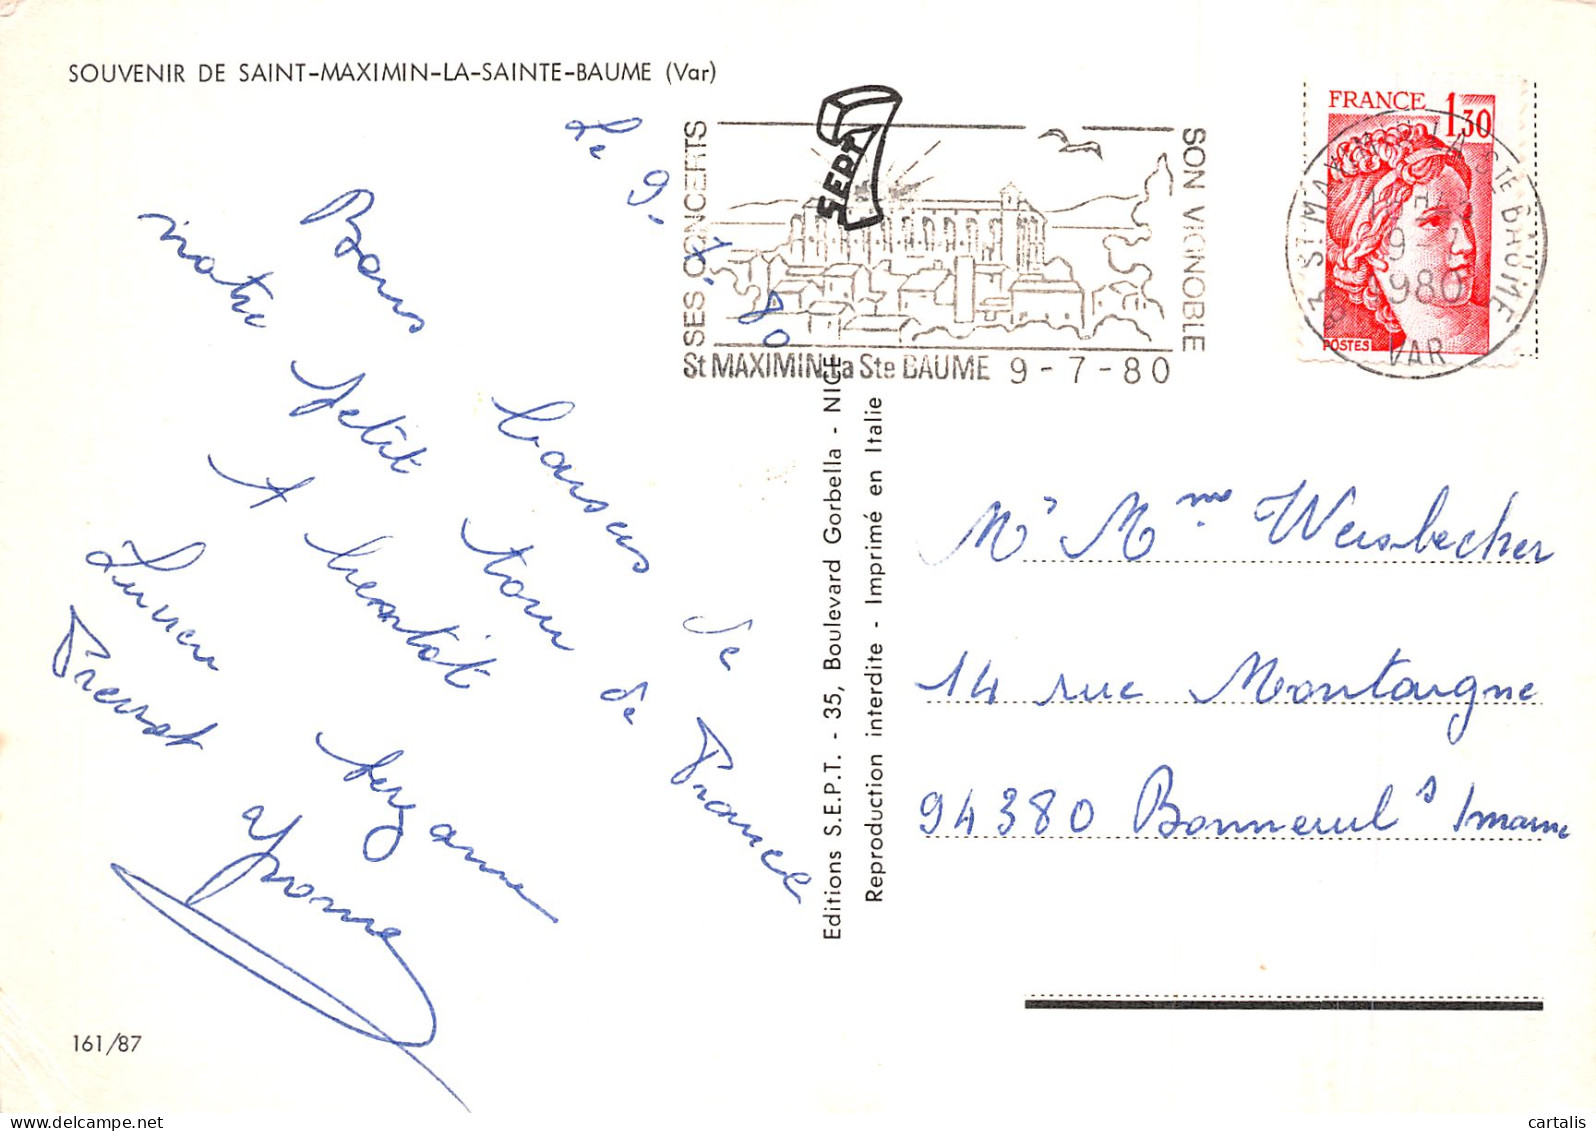 SOUVENIR DE SAINT-MAXIMIN-LA-SAINTE-BAUME (Var)
Le 9. 7. 80
Bons baisers de
notre petit tour de France
A bientôt
Suzanne
Lucien
Yvonne
SEPT
SES CONCERTS
SON VIGNOBLE
St MAXIMIN la Ste BAUME 9-7-80
FRANCE 1,30
POSTES
83 St MAXIMIN LA Ste BAUME
9-7
1980
VAR
Editions S.E.P.T. - 35, Boulevard Gorbella - NICE
Reproduction interdite - Imprimé en Italie
Mr Mme Weisbecher
14 rue Montaigne
94380 Bonneuil s/marne
161/87
cartalis